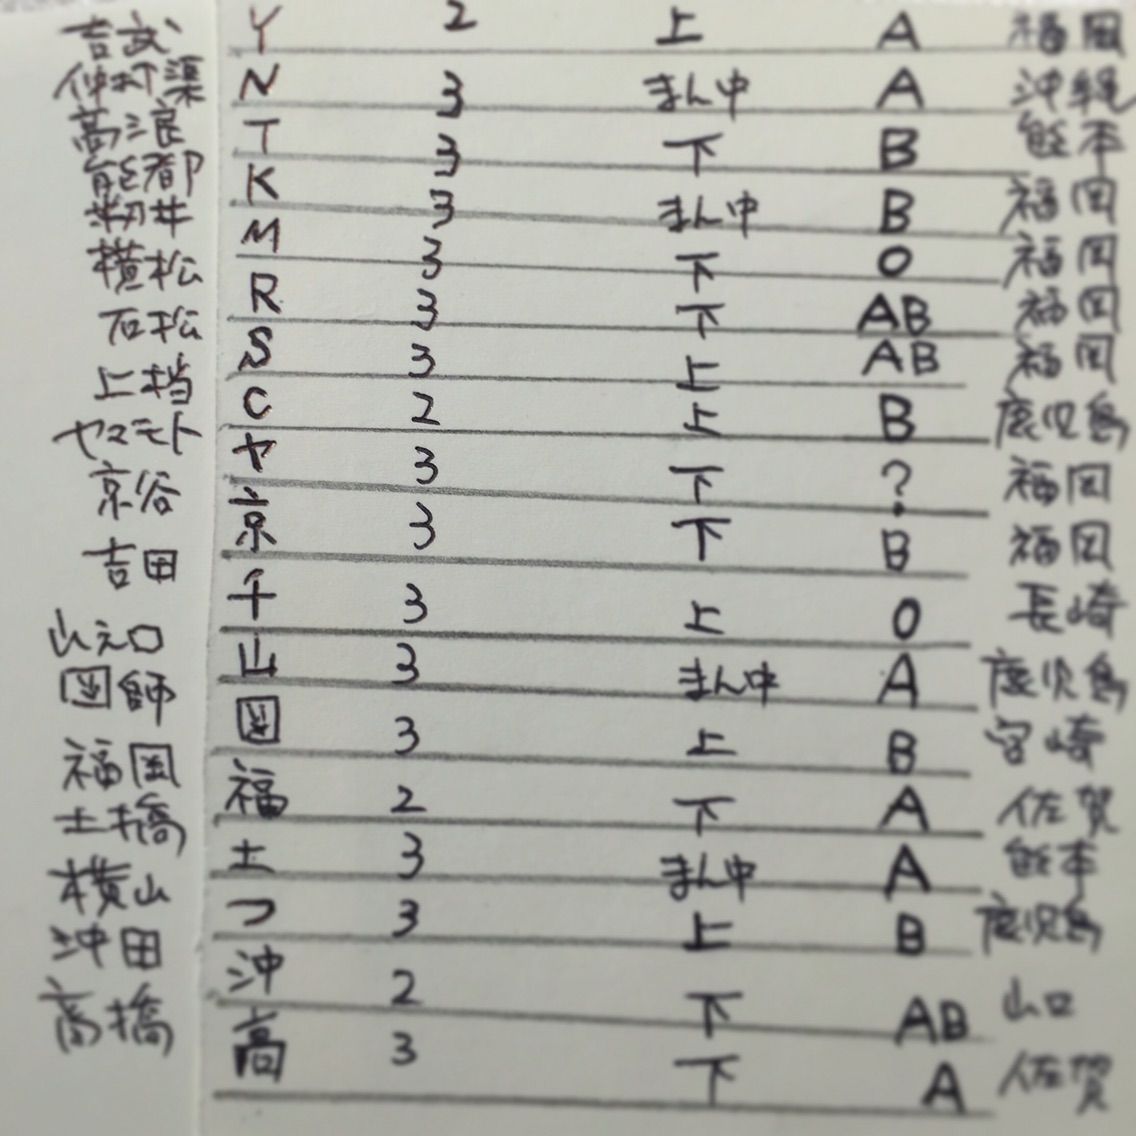 吉武 Y 2 上 A 福岡
仲村渠 N 3 まん中 A 沖縄
高浪 T 3 下 B 熊本
能都 K 3 まん中 B 福岡
籾井 M 3 下 O 福岡
横松 R 3 下 AB 福岡
石松 S 3 上 AB 福岡
上档 C 2 上 B 鹿児島
ヤマモト ヤ 3 下 ? 福岡
京谷 京 3 下 B 福岡
吉田 千 3 上 O 長崎
山之口 山 3 まん中 A 鹿児島
図師 図 3 上 B 宮崎
福岡 福 2 下 A 佐賀
土橋 土 3 まん中 A 熊本
横山 つ 3 上 B 鹿児島
沖田 沖 2 下 AB 山口
高橋 高 3 下 A 佐賀